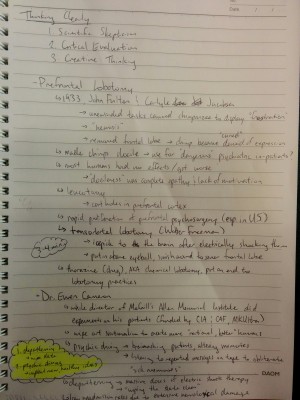 Thinking Clearly
1. Scientific Skepticism
2. Critical Evaluation
3. Creative Thinking
- Prefrontal Lobotomy
↳ 1933 John Fulton & Carlyle Jacobsen
→ unrewarded tasks caused chimpanzees to display "frustration"
→ "neurosis"
→ removed frontal lobe → chimp became devoid of expression
"cured"
→ made chimps docile → use for dangerous psychiatric in-patients?
→ most humans had side effects/got worse
→ "docileness" was complete apathy & lack of motivation
→ leucotomy
→ cuts lobes in prefrontal cortex
→ rapid proliferation of prefrontal psychosurgery (esp in US)
↳ transorbital lobotomy (Walter Freeman)
3-4 min
→ icepick to the brain after electrically shocking them
→ put in above eyeball, swish around to sever frontal lobe
→ thorazine (drug), AKA chemical lobotomy, put an end to
lobotomy practices
- Dr. Ewen Cameron
→ while director of McGill's Allan Memorial Institute did
experiments on his patients (funded by CIA, CAF, MKUltra)
→ uses art
"rational, better" humans
→ psychic driving → bombarding patients, altering memories
→ listening to repeated messages on tape to obliterate
"sick memories"
1. depatterning
2. psychic driving
→ depatterning → massive doses of electric shock therapy
→ "wiping the slate clean"
DAOM